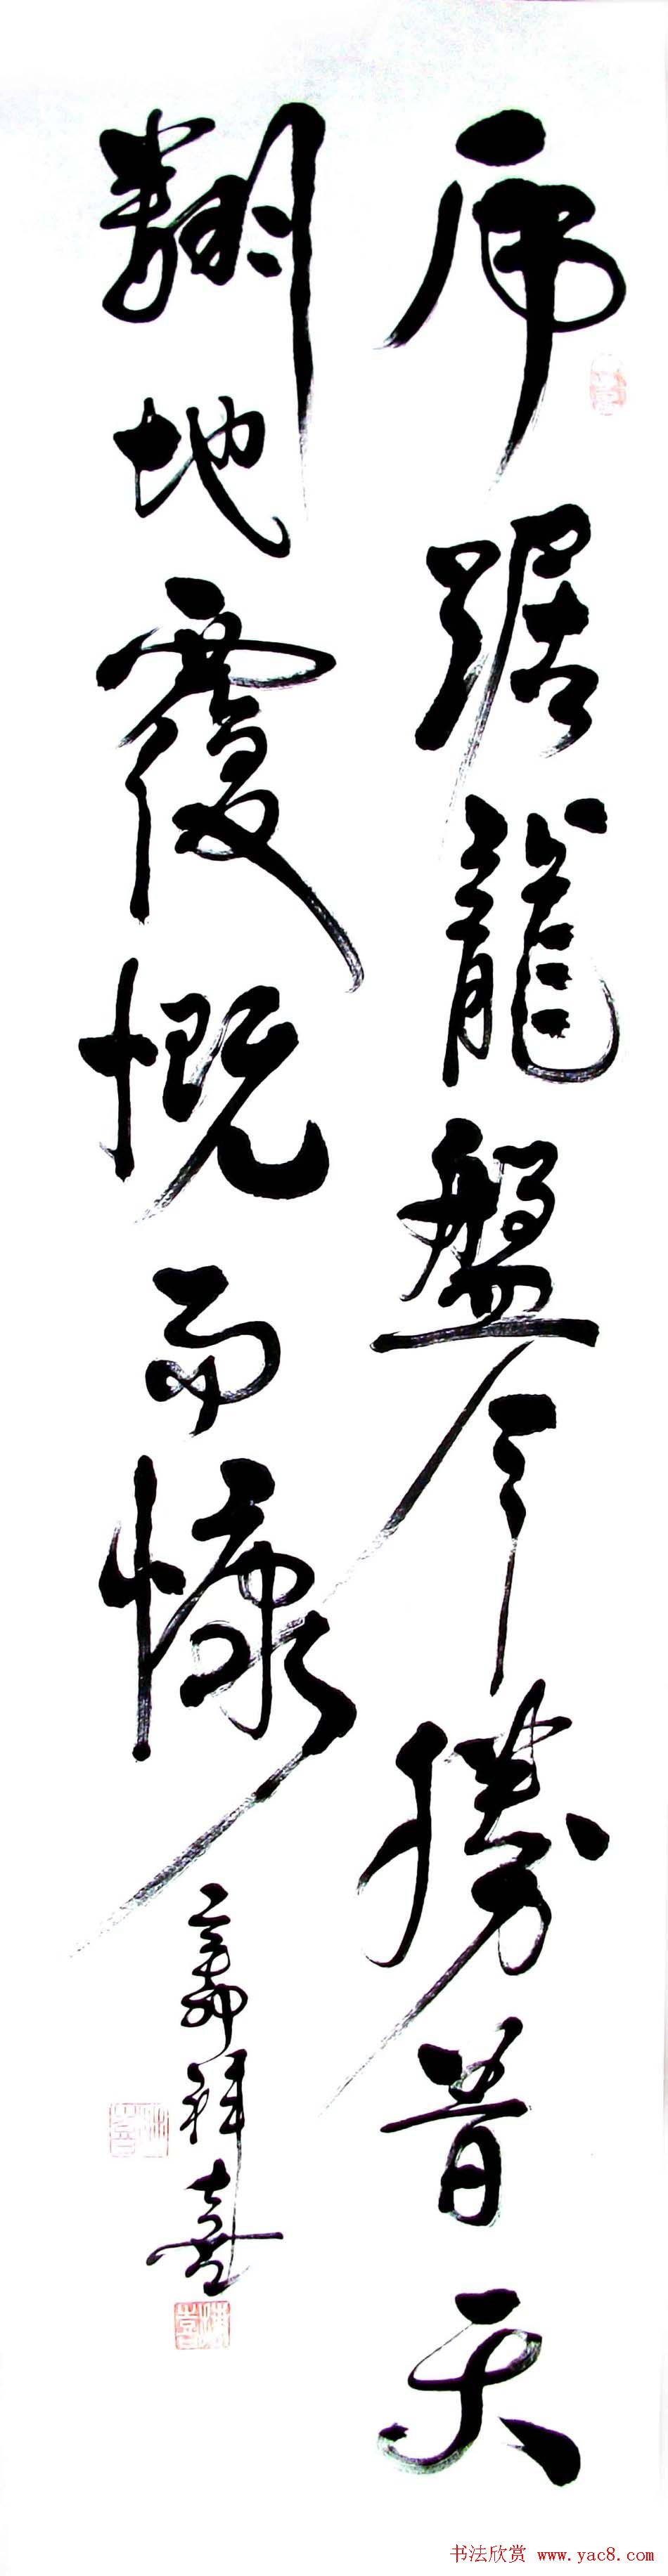 虎踞龍盤今勝昔天
翻地覆慨而慷
祥喜
书法欣赏 www.yac8.com